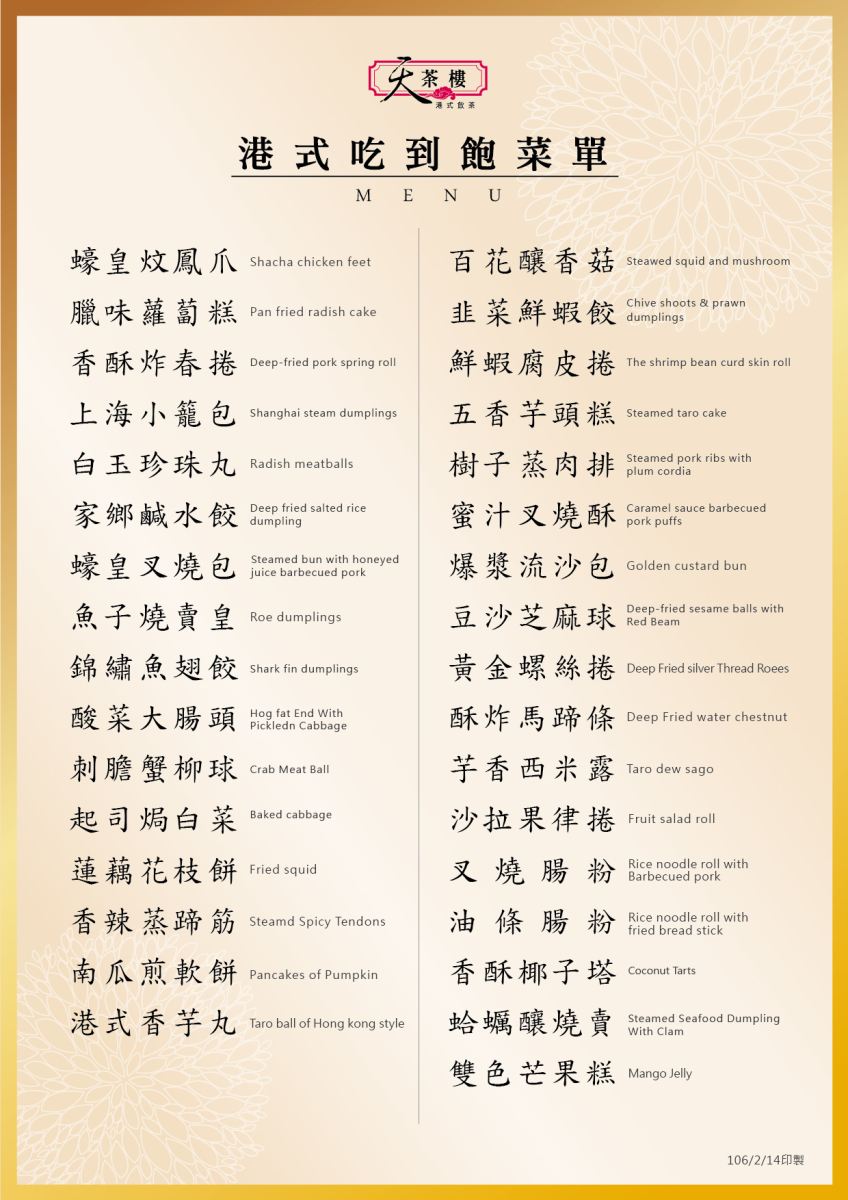 天茶樓
港式飲茶
港式吃到飽菜單
MENU
蠔皇炆鳳爪 Shacha chicken feet
臘味蘿蔔糕 Pan fried radish cake
香酥炸春捲 Deep-fried pork spring roll
上海小籠包 Shanghai steam dumplings
白玉珍珠丸 Radish meatballs
家鄉鹹水餃 Deep fried salted rice
dumpling
蠔皇叉燒包 Steamed bun with honeyed
juice barbecued pork
魚子燒賣皇 Roe dumplings
錦繡魚翅餃 Shark fin dumplings
酸菜大腸頭 Hog fat End With
Pickledn Cabbage
刺膽蟹柳球 Crab Meat Ball
起司焗白菜 Baked cabbage
蓮藕花枝餅 Fried squid
香辣蒸蹄筋 Steamd Spicy Tendons
南瓜煎軟餅 Pancakes of Pumpkin
港式香芋丸 Taro ball of Hong kong style
百花釀香菇 Steawed squid and mushroom
韭菜鮮蝦餃 Chive shoots & prawn
dumplings
鮮蝦腐皮捲 The shrimp bean curd skin roll
五香芋頭糕 Steamed taro cake
樹子蒸肉排 Steamed pork ribs with
plum cordia
蜜汁叉燒酥 Caramel sauce barbecued
pork puffs
爆漿流沙包 Golden custard bun
豆沙芝麻球 Deep-fried sesame balls with
Red Beam
黃金螺絲捲 Deep Fried silver Thread Roees
酥炸馬蹄條 Deep Fried water chestnut
芋香西米露 Taro dew sago
沙拉果律捲 Fruit salad roll
叉燒腸粉 Rice noodle roll with
Barbecued pork
油條腸粉 Rice noodle roll with
fried bread stick
香酥椰子塔 Coconut Tarts
蛤蠣釀燒賣 Steamed Seafood Dumpling
With Clam
雙色芒果糕 Mango Jelly
106/2/14印製